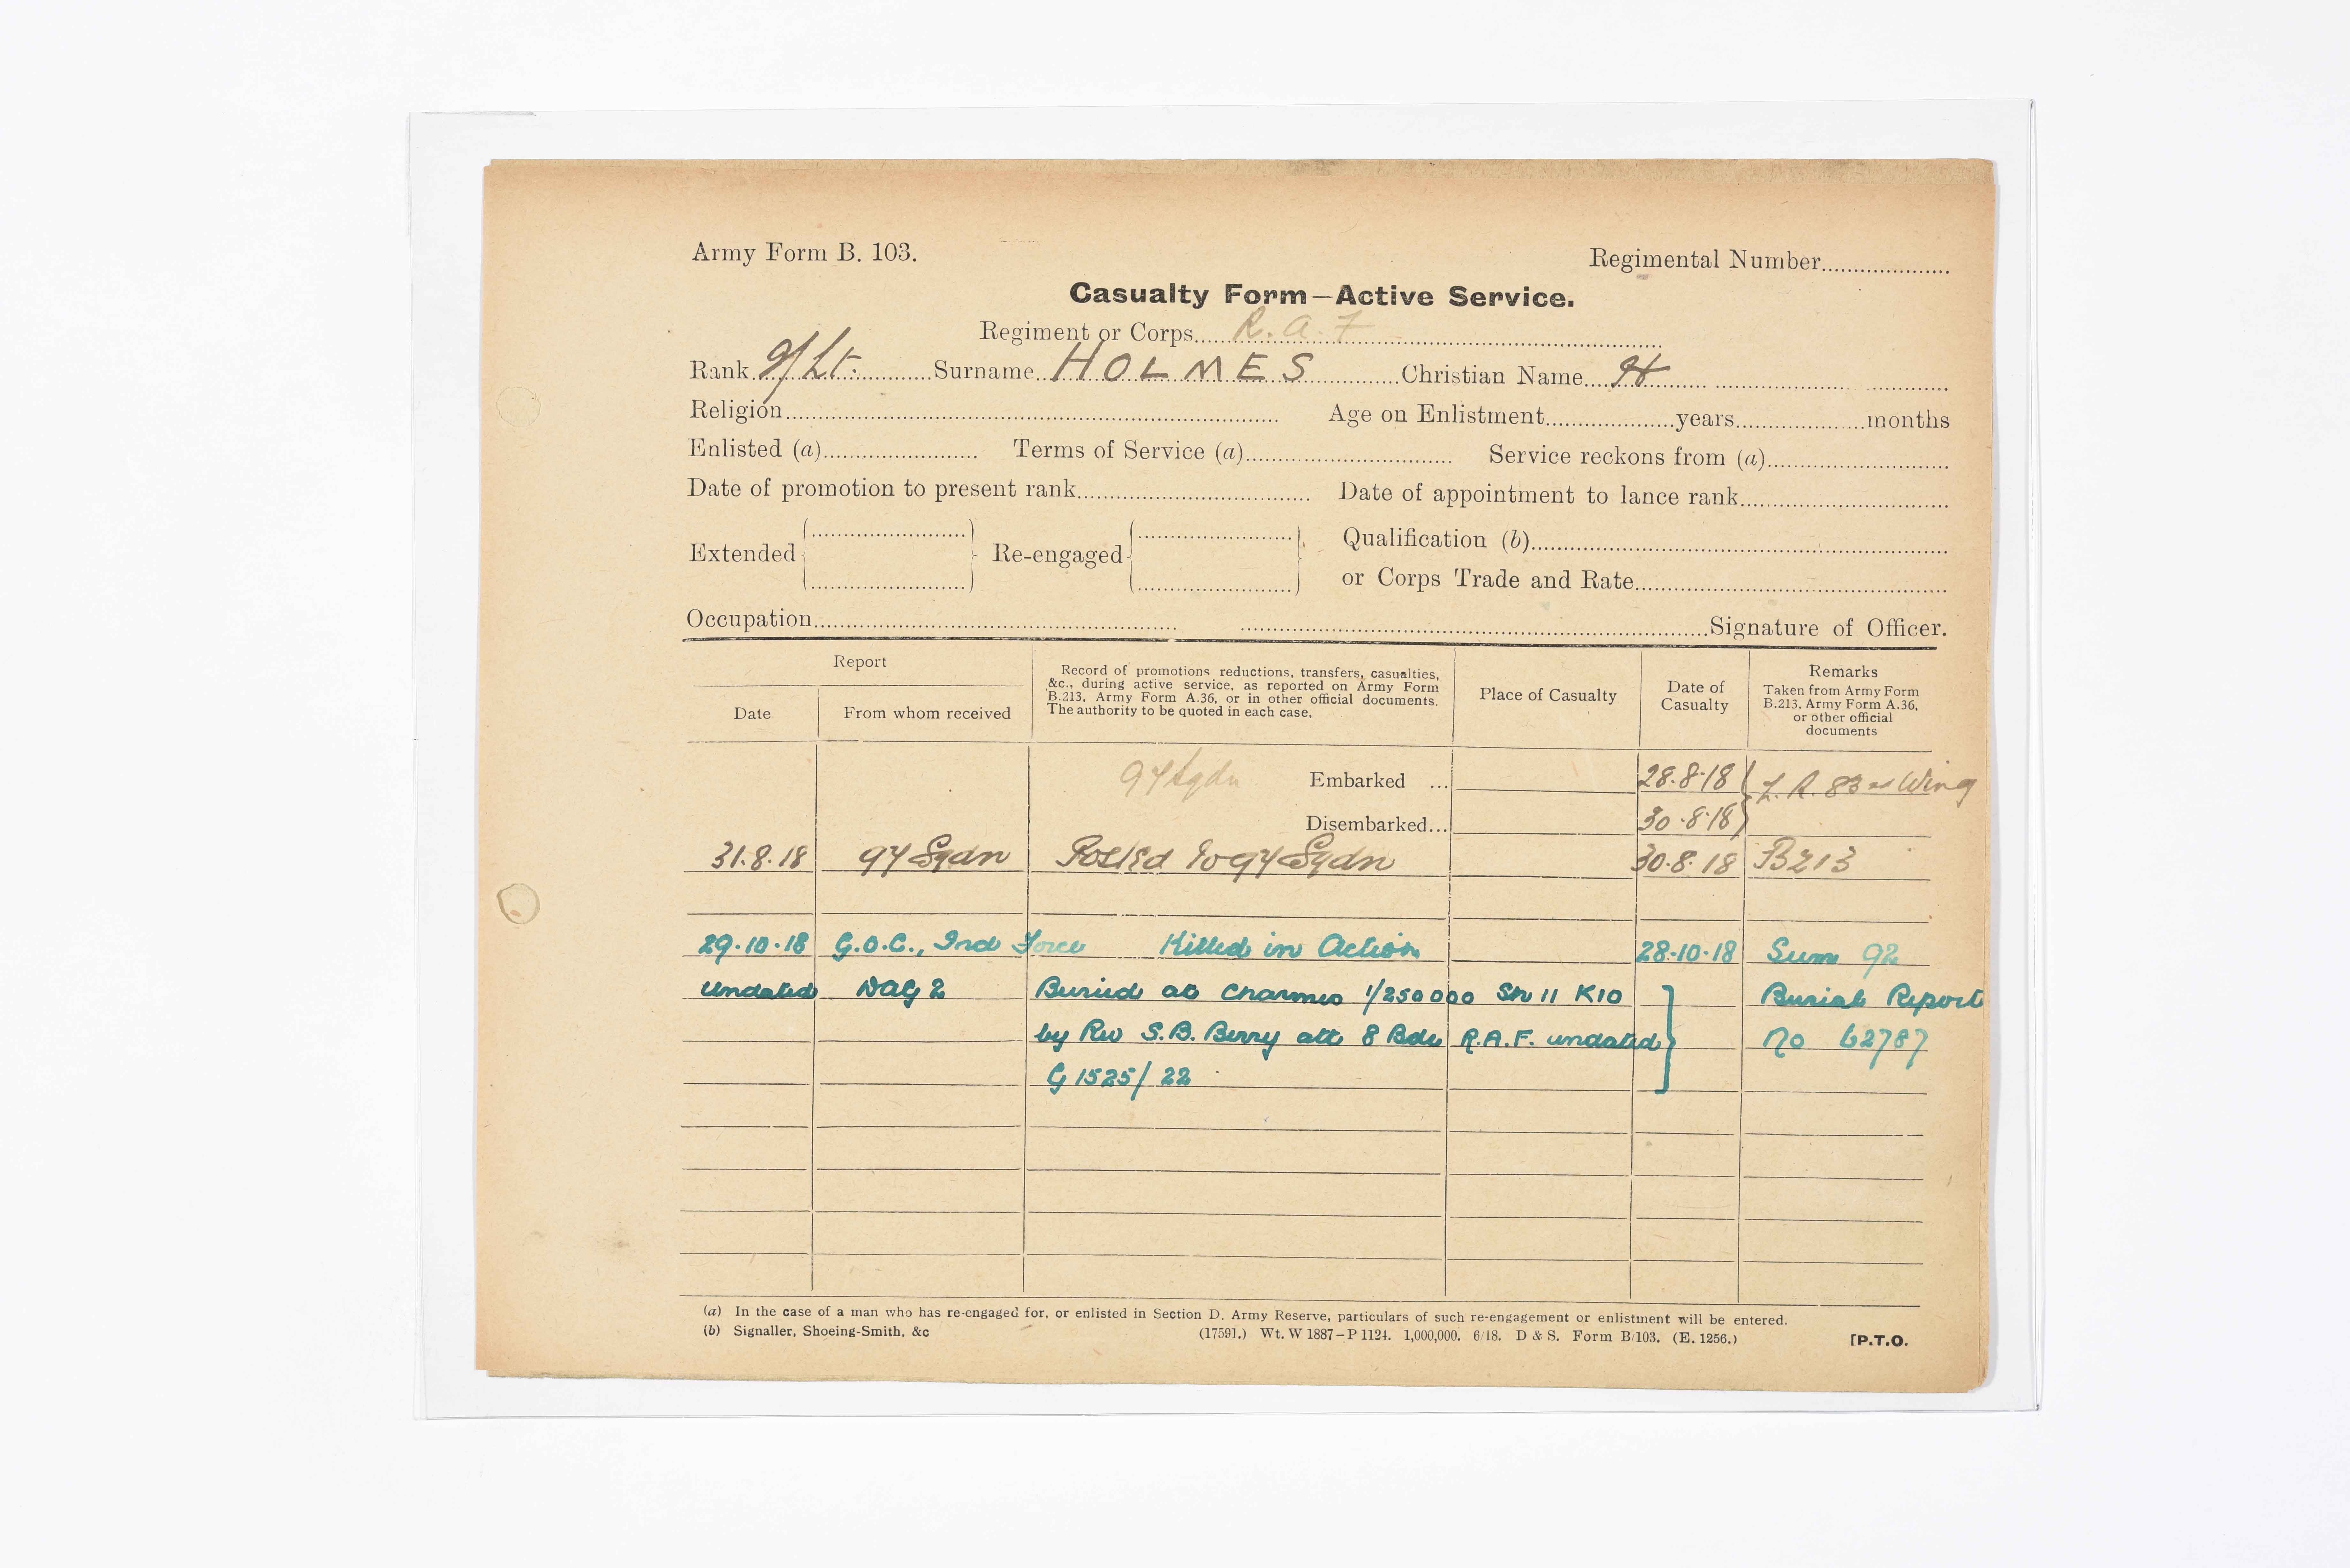 Army Form B. 103.
Regimental Number....................
Casualty Form—Active Service.
Regiment or Corps R.A.F
Rank 2/Lt. Surname HOLMES Christian Name H
Religion Age on Enlistment years months
Enlisted (a) Terms of Service (a) Service reckons from (a)
Date of promotion to present rank Date of appointment to lance rank
Extended Re-engaged Qualification (b)
or Corps Trade and Rate
Occupation Signature of Officer.
Report
Date
From whom received
Record of promotions reductions, transfers, casualties,
&c., during active service, as reported on Army Form
B.213, Army Form A.36, or in other official documents.
The authority to be quoted in each case,
Place of Casualty
Date of
Casualty
Remarks
Taken from Army Form
B.213, Army Form A.36,
or other official
documents
97 Sqdn Embarked ... 28.8.18 L.R. 83rd Wing
Disembarked... 30.8.18
31.8.18 97 Sqdn Posted to 97 Sqdn 30.8.18 B213
29.10.18 G.O.C., Ind Force Killed in Action 28.10.18 Sum 92
undated DAG 2 Buried at Charmes 1/250000 Sh 11 K10 Burial Report
by Rev S.B. Berry att 8 Bde R.A.F. undated No 62787
G 1525/22
(a) In the case of a man who has re-engaged for, or enlisted in Section D. Army Reserve, particulars of such re-engagement or enlistment will be entered.
(b) Signaller, Shoeing-Smith, &c (17591.) Wt. W 1887—P 1124. 1,000,000. 6/18. D & S. Form B/103. (E. 1256.) [P.T.O.